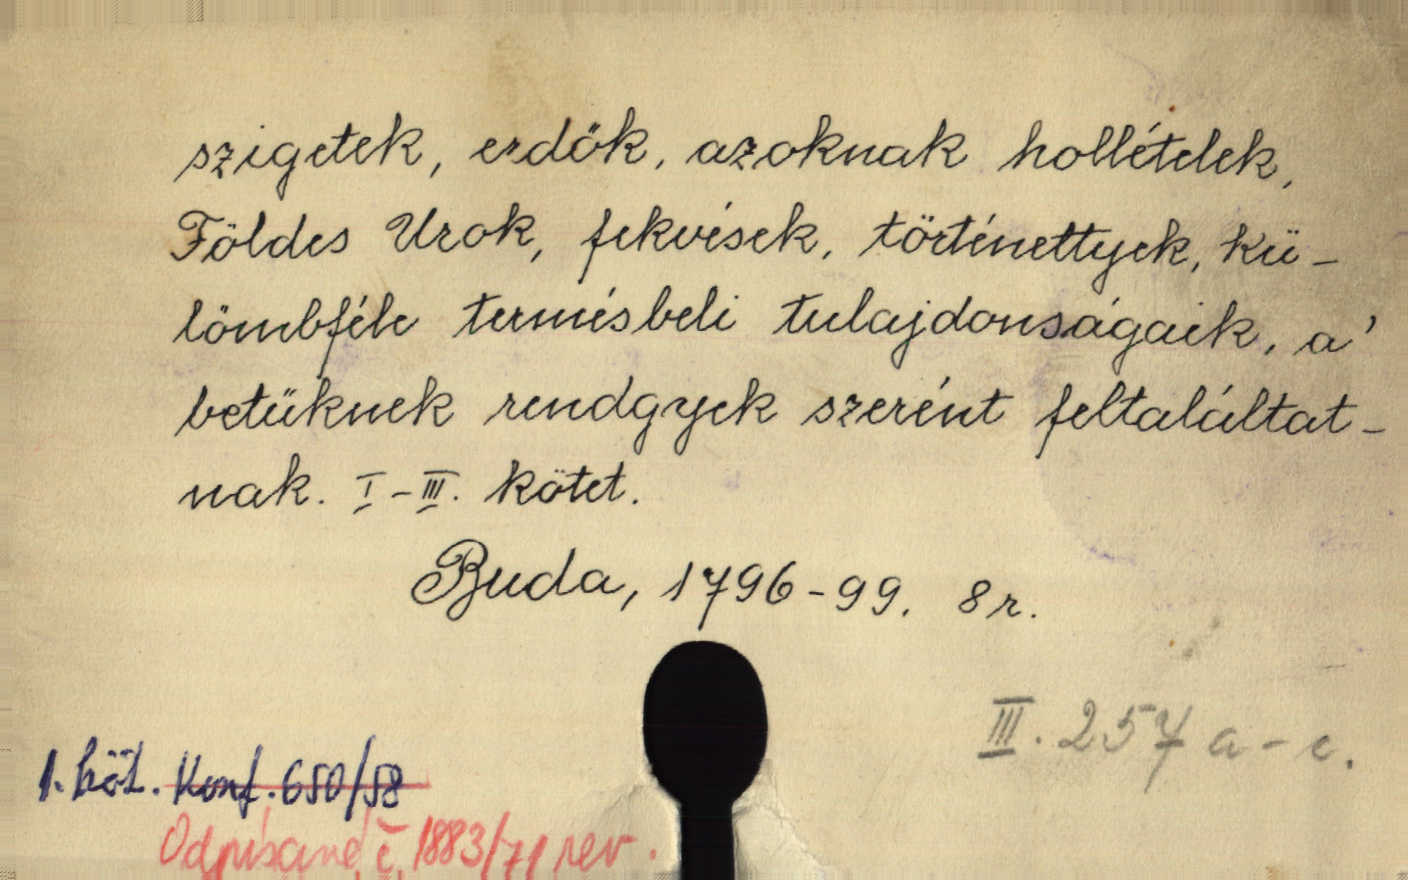 szigetek, erdők, azoknak hollételek,
Földes Urok, fekvések, történettyek, kü-
lömbféle termésbeli tulajdonságaik, a'
betüknek rendgyek szerént feltaláltat-
nak. I-III. kötet.
Buda, 1796-99. 8r.
III. 257 a-c.
1. köt. Konf. 650/58
Odpísané č. 1883/71 rev.